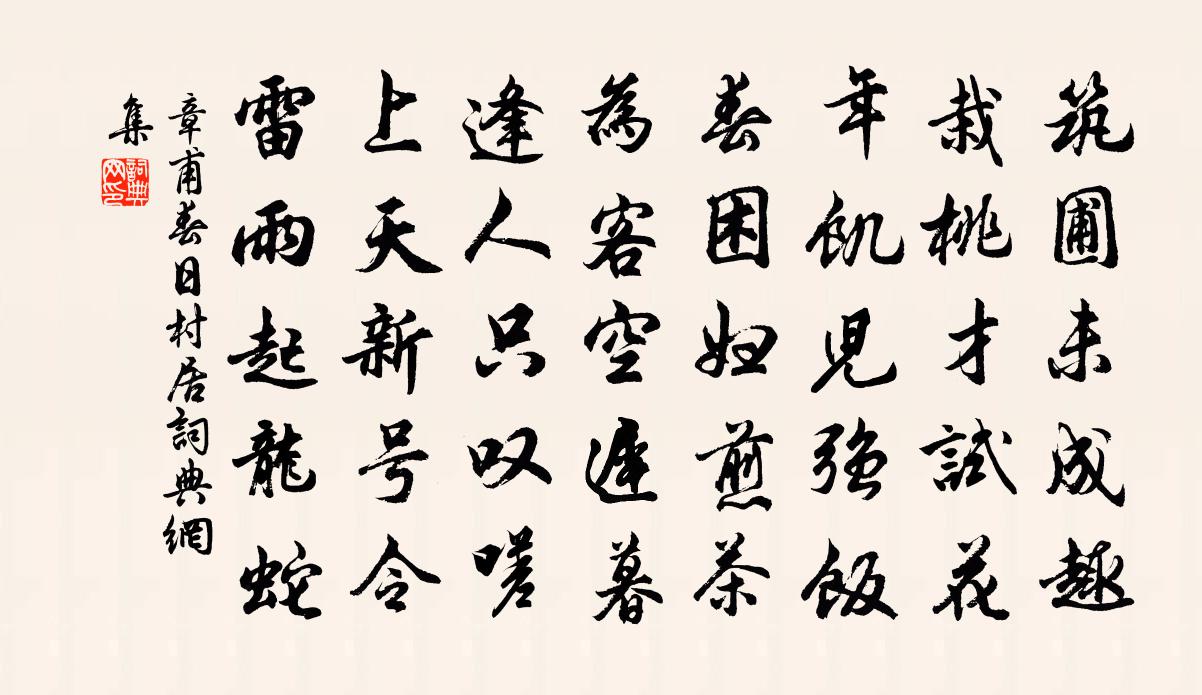 筑圃未成趣
栽桃才試花
年飢児強飯
春困妇煎茶
為客空遲暮
逢人只叹嗟
上天新号令
雷雨起龍蛇
章甫春日村居詞典網
集
詞典
网印